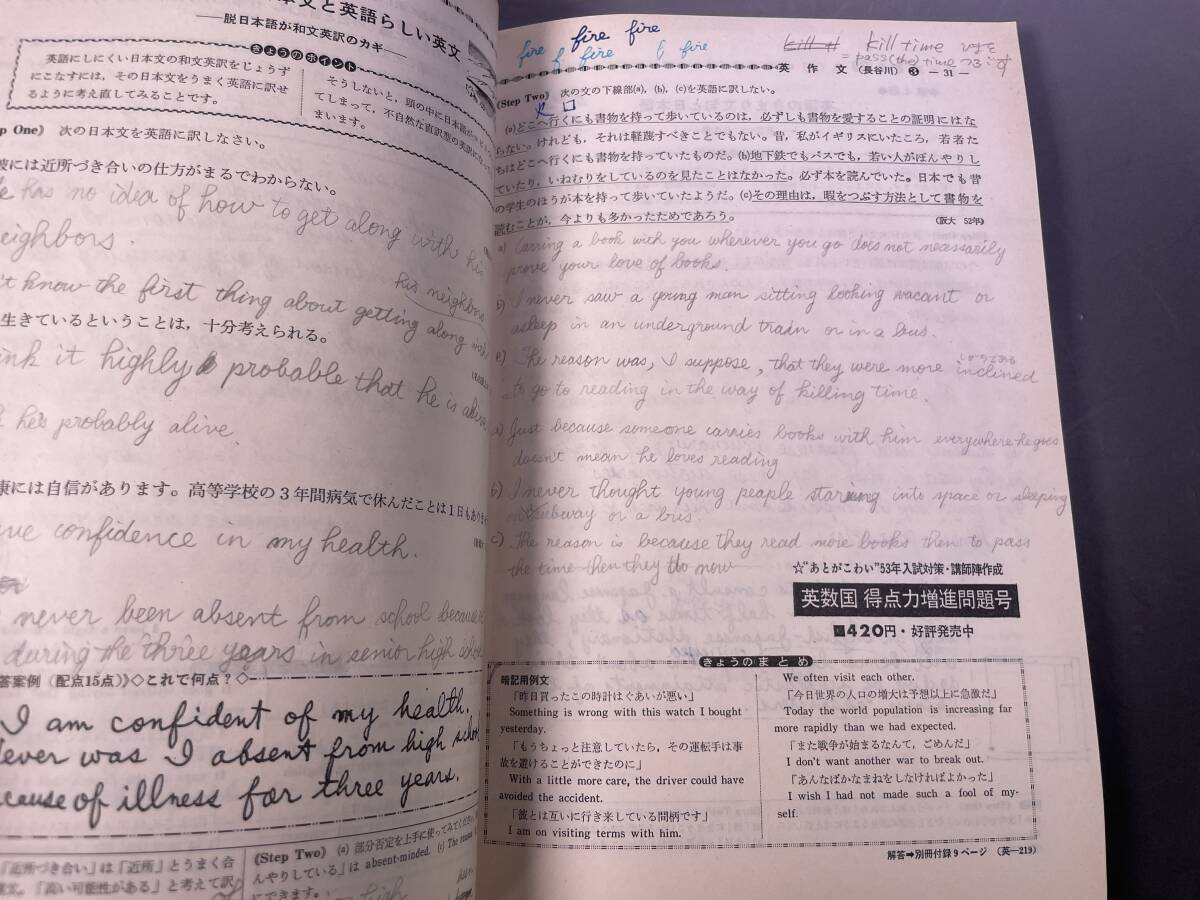 本文と英語らしい英文
——脱日本語が和文英訳のカギ——
きょうのポイント
英語にしにくい日本文の和文英訳をじょうず
にこなすには，その日本文をうまく英語に訳せ
るように考え直してみることです。
そうしないと，頭の中に日本語が
てしまって，不自然な直訳型の英訳になって
まいます。
One》 次の日本文を英語に訳しなさい。
彼には近所づき合いの仕方がまるでわからない。
has no idea of how to get along with his
neighbors.
his neighbors
't know the first thing about getting along with
生きているということは，十分考えられる。
think it highly probable that he is alive.
he's probably alive.
康には自信があります。高等学校の3年間病気で休んだことは1日もありませ
have confidence in my health.
never been absent from school because
during the three years in senior high
答案例（配点15点）》◇これで何点？◇
I am confident of my health.
Never was I absent from high school
because of illness for three years.
「近所づき合い」は「近所」とうまく合
「高い可能性がある」と考えて訳
《Step Two》 (a) 部分否定を上手に使ってみてください
んやりしている」は absent-minded. (c) The reason
にできます。
fire fire fire
fire & fire & fire
kill time ひまを
= pass (the) time つぶす
英 作 文 （長谷川） ③ —31—
《Step Two》 次の文の下線部(a)，(b)，(c)を英語に訳しなさい。
(a)どこへ行くにも書物を持って歩いているのは，必ずしも書物を愛することの証明にはな
らない。けれども，それは軽蔑すべきことでもない。昔，私がイギリスにいたころ，若者た
ちはどこへ行くにも書物を持っていたものだ。(b)地下鉄でもバスでも，若い人がぼんやりし
ていたり，いねむりをしているのを見たことはなかった。必ず本を読んでいた。日本でも昔
の学生のほうが本を持って歩いていたようだ。(c)その理由は，暇をつぶす方法として書物を
読むことが，今よりも多かったためであろう。 （阪大 52年）
a) Carring a book with you wherever you go does not necessarily
prove your love of books.
b) I never saw a young man sitting looking vacant or
asleep in an underground train or in a bus.
c) The reason was, I suppose, that they were more inclined
しがちである
to go to reading in the way of killing time.
a) Just because someone carries books with him everywhere he goes
doesn't mean he loves reading
b) I never thought young people staring into space or sleeping
in subway or a bus.
c) The reason is because they read more books then to pass
the time then they do now
☆“あとがこわい”53年入試対策・講師陣作成
英数国 得点力増進問題号
420円・好評発売中
きょうのまとめ
暗記用例文
「昨日買ったこの時計はぐあいが悪い」
Something is wrong with this watch I bought
yesterday.
「もうちょっと注意していたら，その運転手は事
故を避けることができたのに」
With a little more care, the driver could have
avoided the accident.
「彼とは互いに行き来している間柄です」
I am on visiting terms with him.
We often visit each other.
「今日世界の人口の増大は予想以上に急激だ」
Today the world population is increasing far
more rapidly than we had expected.
「また戦争が始まるなんて，ごめんだ」
I don't want another war to break out.
「あんなばかなまねをしなければよかった」
I wish I had not made such a fool of my-
self.
解答➡別冊付録9ページ （英—219）